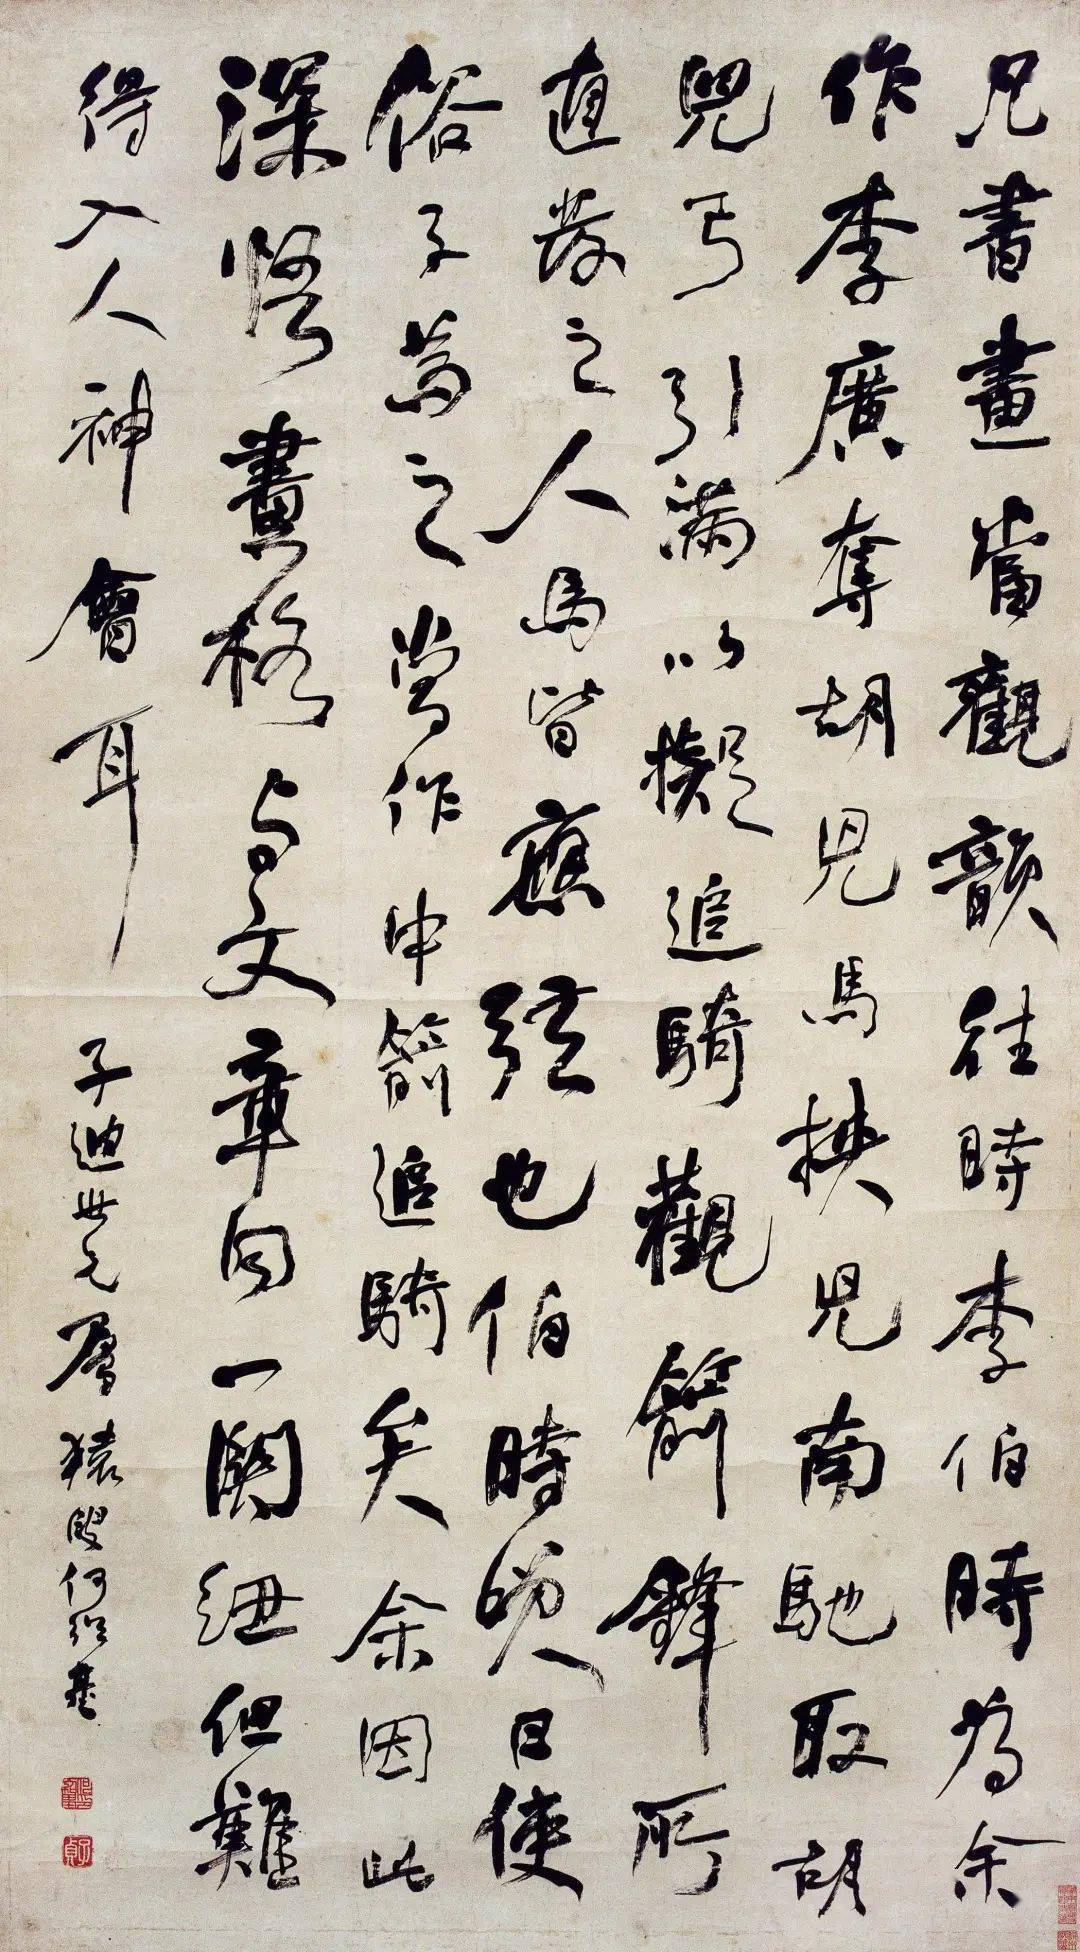 凡書畫當觀韻往時李伯時為余
作李廣奪胡兒馬挾兒南馳取胡
兒弓引滿以擬追騎觀箭鋒所
直發之人馬皆應弦也伯時笑曰使
俗子為之當作中箭追騎矣余因此
深悟畫格与文章同一關紐但難
得入人神會耳
子迪世兄屬 猨叟何紹基
子貞